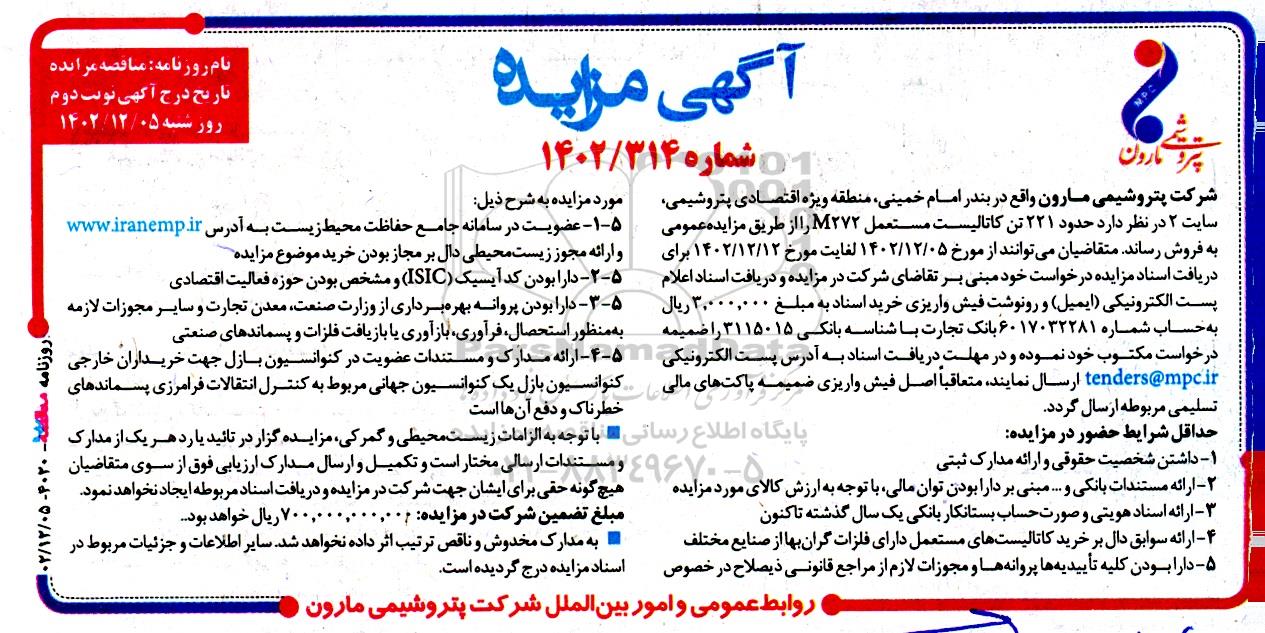 نام روزنامه: مناقصه مزایده
تاریخ درج آگهی نوبت دوم
روز شنبه ۱۴۰۲/۱۲/۰۵
آگهی مزایده
شماره ۱۴۰۲/۳۱۴
M.P.C
پتروشیمی مارون
شرکت پتروشیمی مارون واقع در بندر امام خمینی، منطقه ویژه اقتصادی پتروشیمی،
سایت ۲ در نظر دارد حدود ۲۲۱ تن کاتالیست مستعمل M۲۷۲ را از طریق مزایده عمومی
به فروش رساند. متقاضیان می‌توانند از مورخ ۱۴۰۲/۱۲/۰۵ لغایت مورخ ۱۴۰۲/۱۲/۱۲ برای
دریافت اسناد مزایده درخواست خود مبنی بر تقاضای شرکت در مزایده و دریافت اسناد اعلام
پست الکترونیکی (ایمیل) و رونوشت فیش واریزی خرید اسناد به مبلغ ۳,۰۰۰,۰۰۰ ریال
به‌حساب شماره ۶۰۱۷۰۳۲۲۸۱ بانک تجارت با شناسه بانکی ۳۱۱۵۰۱۵ را ضمیمه
درخواست مکتوب خود نموده و در مهلت دریافت اسناد به آدرس پست الکترونیکی
tenders@mpc.ir ارسال نمایند، متعاقباً اصل فیش واریزی ضمیمه پاکت‌های مالی
تسلیمی مربوطه ارسال گردد.
حداقل شرایط حضور در مزایده:
۱- داشتن شخصیت حقوقی و ارائه مدارک ثبتی
۲- ارائه مستندات بانکی و ... مبنی بر دارا بودن توان مالی، با توجه به ارزش کالای مورد مزایده
۳- ارائه اسناد هویتی و صورت‌حساب بستانکار بانکی یک سال گذشته تاکنون
۴- ارائه سوابق دال بر خرید کاتالیست‌های مستعمل دارای فلزات گران‌بها از صنایع مختلف
۵- دارا بودن کلیه تأییدیه‌ها پروانه‌ها و مجوزات لازم از مراجع قانونی ذیصلاح در خصوص
مورد مزایده به شرح ذیل:
۵-۱- عضویت در سامانه جامع حفاظت محیط زیست به آدرس www.iranemp.ir
و ارائه مجوز زیست‌محیطی دال بر مجاز بودن خرید موضوع مزایده
۵-۲- دارا بودن کد آیسیک (ISIC) و مشخص بودن حوزه فعالیت اقتصادی
۵-۳- دارا بودن پروانه بهره‌برداری از وزارت صنعت، معدن تجارت و سایر مجوزات لازمه
به‌منظور استحصال، فرآوری، بازآوری یا بازیافت فلزات و پسماندهای صنعتی
۵-۴- ارائه مدارک و مستندات عضویت در کنوانسیون بازل جهت خریداران خارجی
کنوانسیون بازل یک کنوانسیون جهانی مربوط به کنترل انتقالات فرامرزی پسماندهای
خطرناک و دفع آن‌ها است
با توجه به الزامات زیست‌محیطی و گمرکی، مزایده گزار در تائید یا رد هر یک از مدارک
و مستندات ارسالی مختار است و تکمیل و ارسال مدارک ارزیابی فوق از سوی متقاضیان
هیچ‌گونه حقی برای ایشان جهت شرکت در مزایده و دریافت اسناد مربوطه ایجاد نخواهد نمود.
مبلغ تضمین شرکت در مزایده: ۷۰۰,۰۰۰,۰۰۰,۰۰۰ ریال خواهد بود..
به مدارک مخدوش و ناقص ترتیب اثر داده نخواهد شد. سایر اطلاعات و جزئیات مربوط در
اسناد مزایده درج گردیده است.
روابط عمومی و امور بین‌الملل شرکت پتروشیمی مارون
روزنامه مناقصه - ۴۰۲۰ - ۰۲/۱۲/۰۵
ParsNamadData
پایگاه اطلاع رسانی مناقصه مزایده
۰۲۱-۸۸۳۴۹۶۷۰-۵